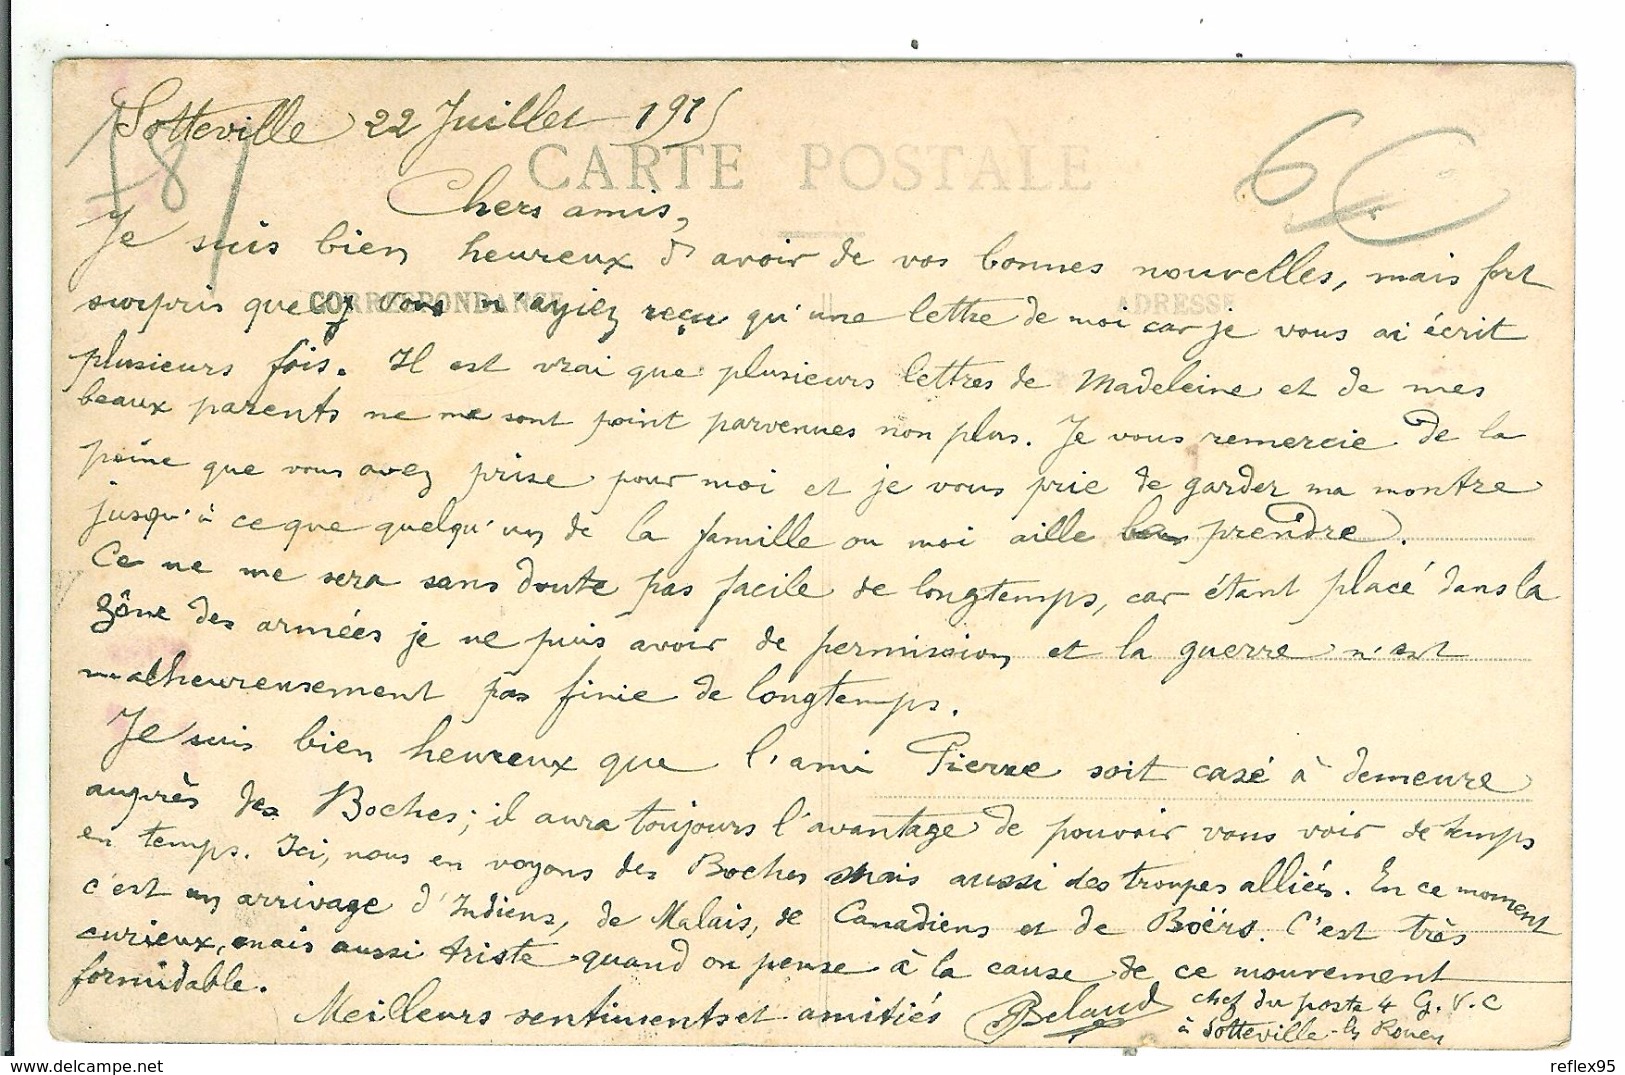 Sotteville 22 Juillet 1915
187
6
CARTE POSTALE
Chers amis,
Je suis bien heureux d'avoir de vos bonnes nouvelles, mais fort
CORRESPONDANCE
ADRESSE
surpris que vous n'ayiez reçu qu'une lettre de moi car je vous ai écrit
plusieurs fois. Il est vrai que plusieurs lettres de Madeleine et de mes
beaux parents ne me sont point parvenues non plus. Je vous remercie de la
peine que vous avez prise pour moi et je vous prie de garder ma montre
jusqu'à ce que quelqu'un de la famille ou moi aille prendre.
Ce ne me sera sans doute pas facile de longtemps, car étant placé dans la
zône des armées je ne puis avoir de permission et la guerre n'est
malheureusement pas finie de longtemps.
Je suis bien heureux que l'ami Pierre soit casé à demeure
auprès des Boches; il aura toujours l'avantage de pouvoir vous voir de temps
en temps. Ici, nous en voyons des Boches mais aussi des troupes alliées. En ce moment
c'est un arrivage d'Indiens, de Malais, de Canadiens et de Boërs. C'est très
curieux, mais aussi triste quand on pense à la cause de ce mouvement
formidable.
Meilleurs sentiments et amitiés Belaud chef du poste 4 G.V.C
à Sotteville-les Rouen
delcampe.net
reflex95